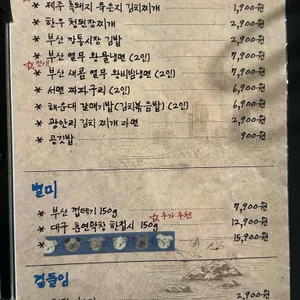 * 제주 흑돼지 묵은지 김치찌개 1,900원
* 한우 된장찌개 2,900원
* 부산 깡통시장 김밥 2,900원
* 부산 열무 왕물냉면 (2인) 7,900원
* 부산 새콤 열무 왕비빔냉면 (2인) 7,900원
* 서면 짜파구리 (2인) 6,900원
* 해운대 갈매기밥(김치볶음밥) (2인) 6,900원
* 광안리 김치 찌개 라면 2,900원
* 공깃밥 900원
별미
* 부산 껍데기 150g 7,900원
강추
* 대구 막창 한접시 150g 12,900원
* 15,900원
곁들임
2,900원